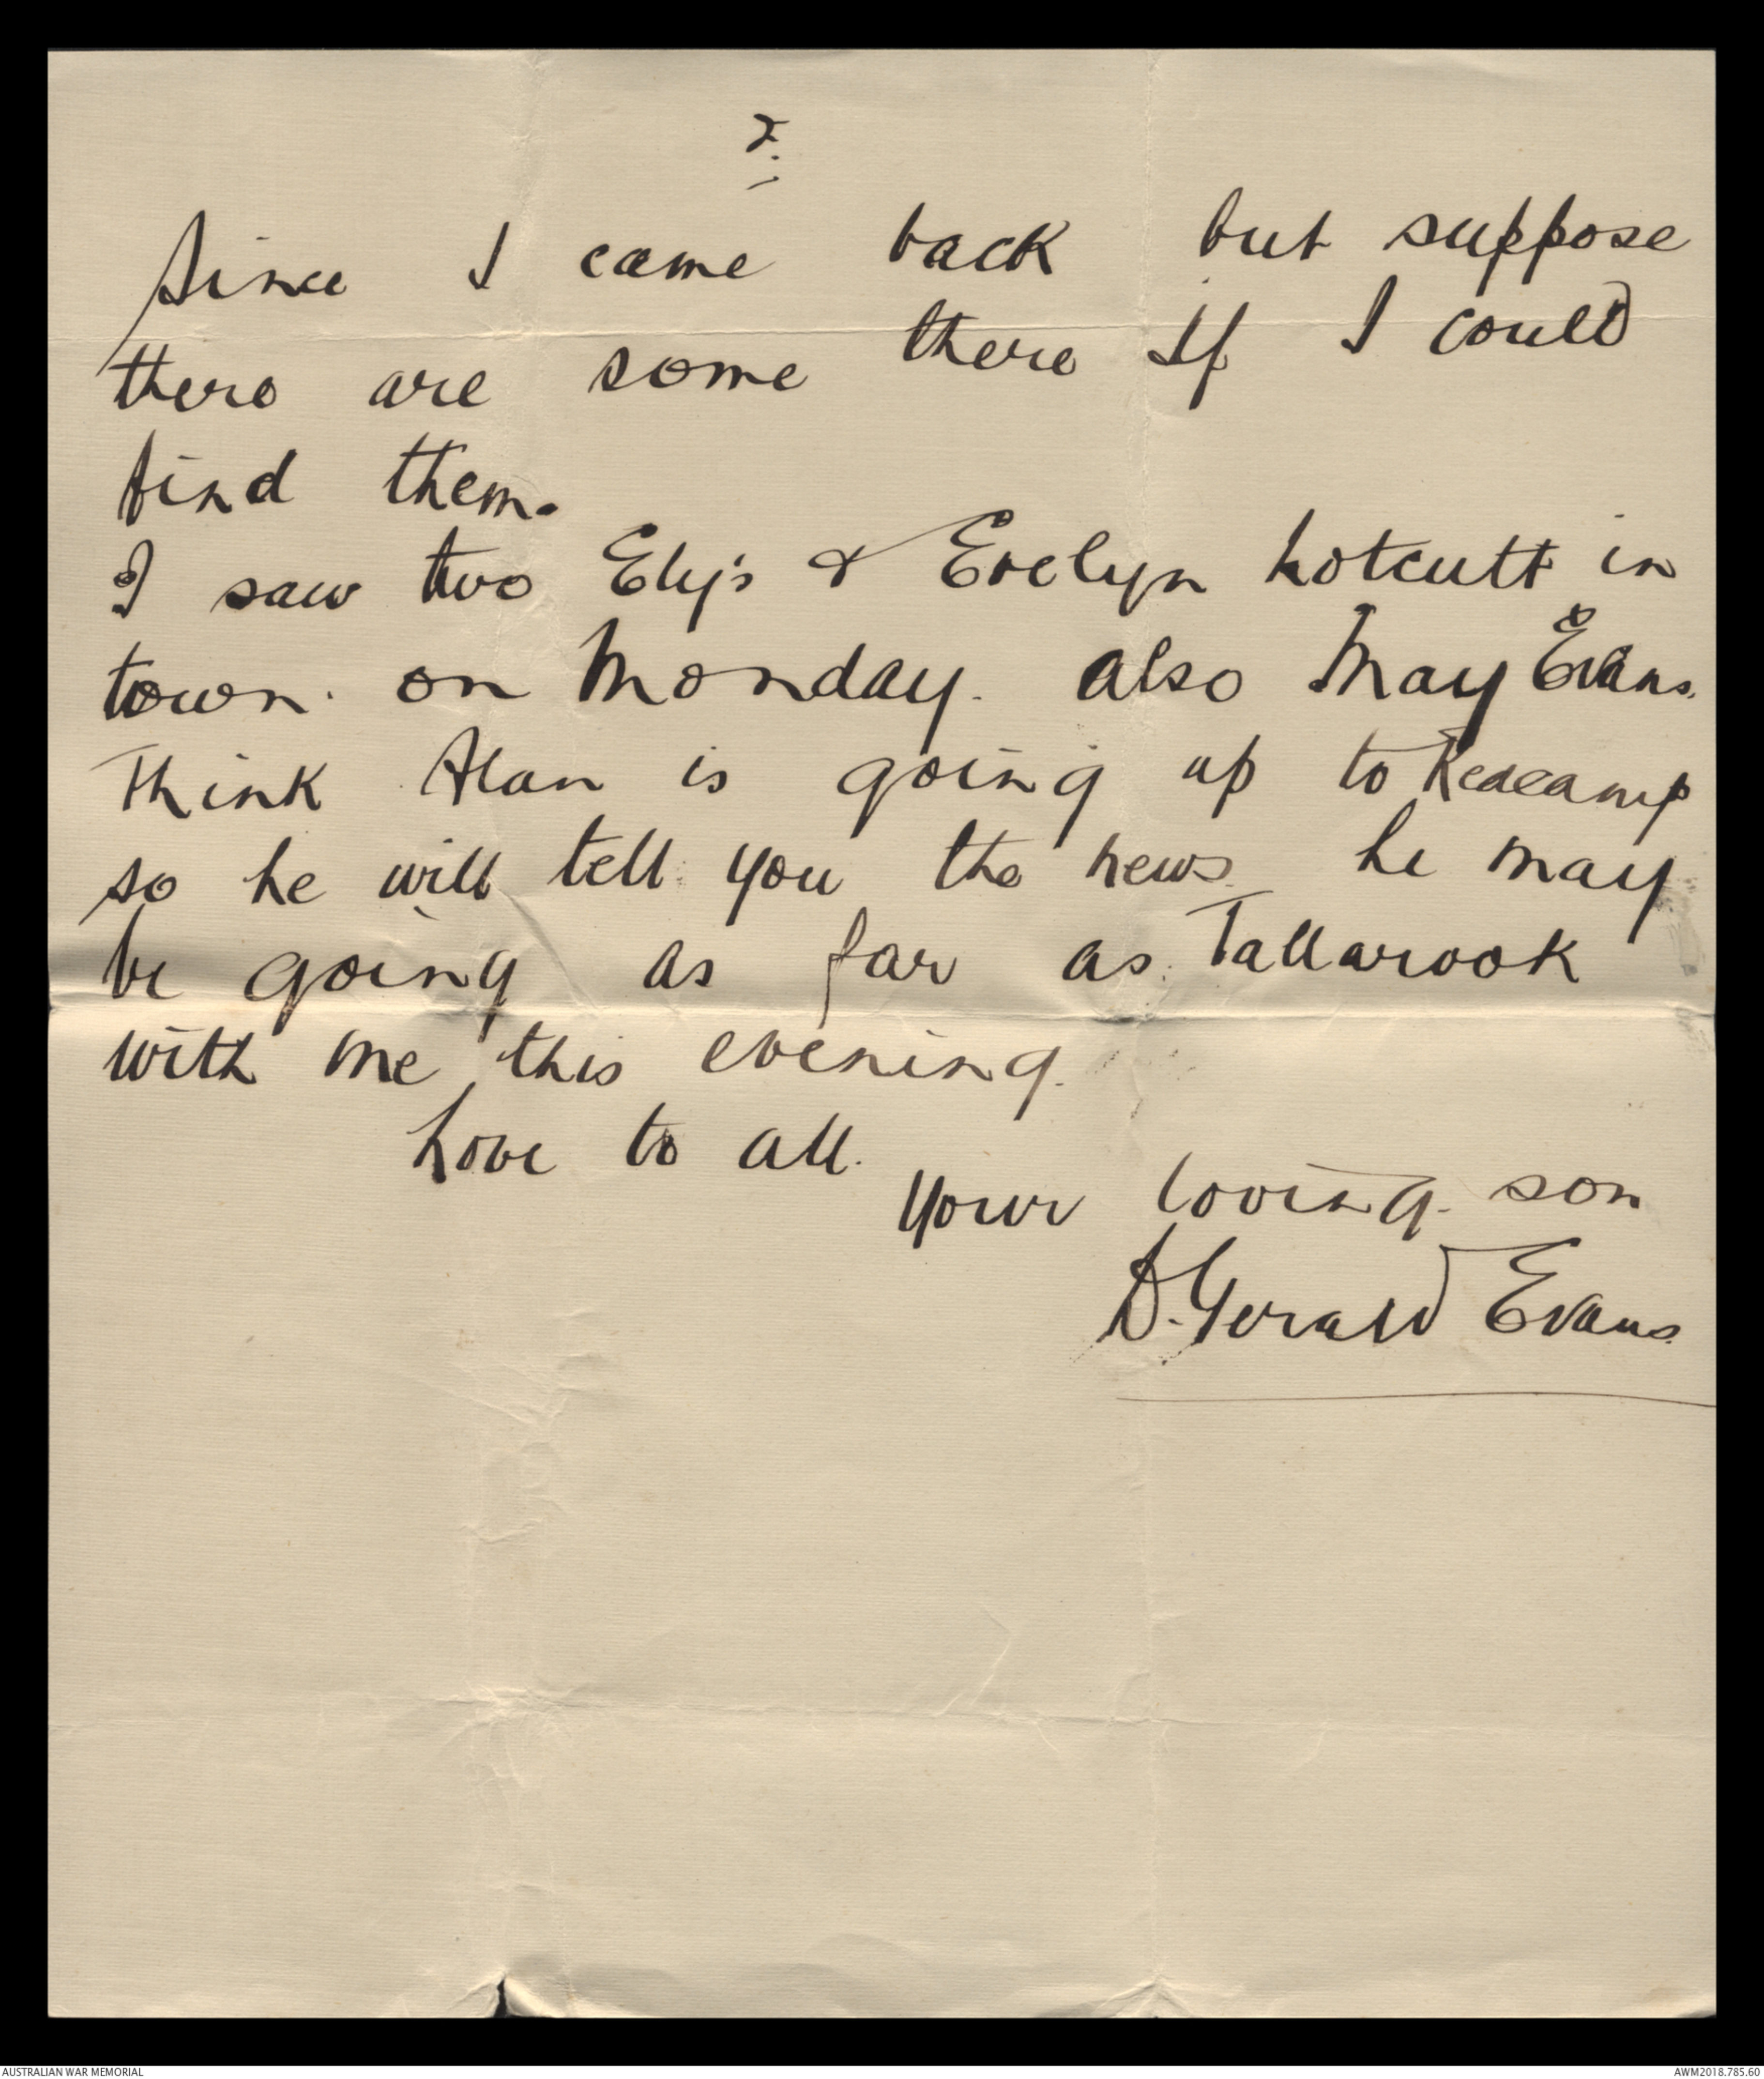 2.
since I came back but suppose
there are some there if I could
find them.
I saw two Ely's & Evelyn Lotcutt in
town. on Monday. also May Evans.
Think Alan is going up to Redcamp
so he will tell you the news. he may
be going as far as Tallarook
with me this evening.
Love to all.
Your loving son
D. Gerald Evans.
AUSTRALIAN WAR MEMORIAL
AWM2018.785.60